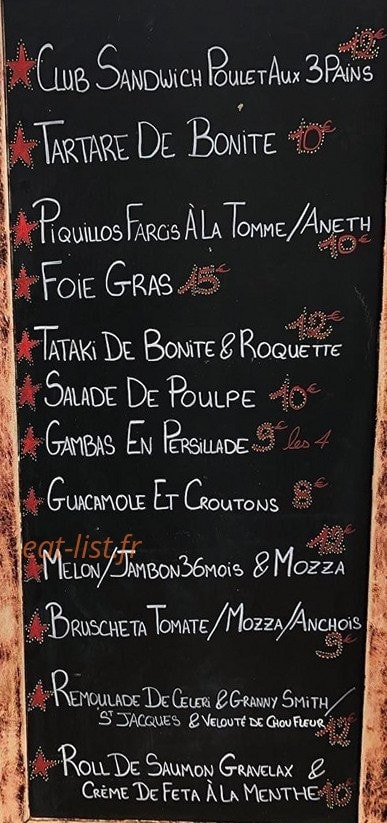 Club Sandwich Poulet Aux 3 Pains
Tartare De Bonite 10€
Piquillos Farcis À La Tomme/Aneth 10€
Foie Gras 15€
Tataki De Bonite & Roquette 12€
Salade De Poulpe 10€
Gambas En Persillade 9€ les 4
Guacamole Et Croutons 8€
eat-list.fr
Melon/Jambon 36mois & Mozza 13€
Bruscheta Tomate/Mozza/Anchois 9€
Remoulade De Celeri & Granny Smith/
St Jacques & Velouté de Chou Fleur
Roll De Saumon Gravelax &
Crème De Feta À La Menthe 10€